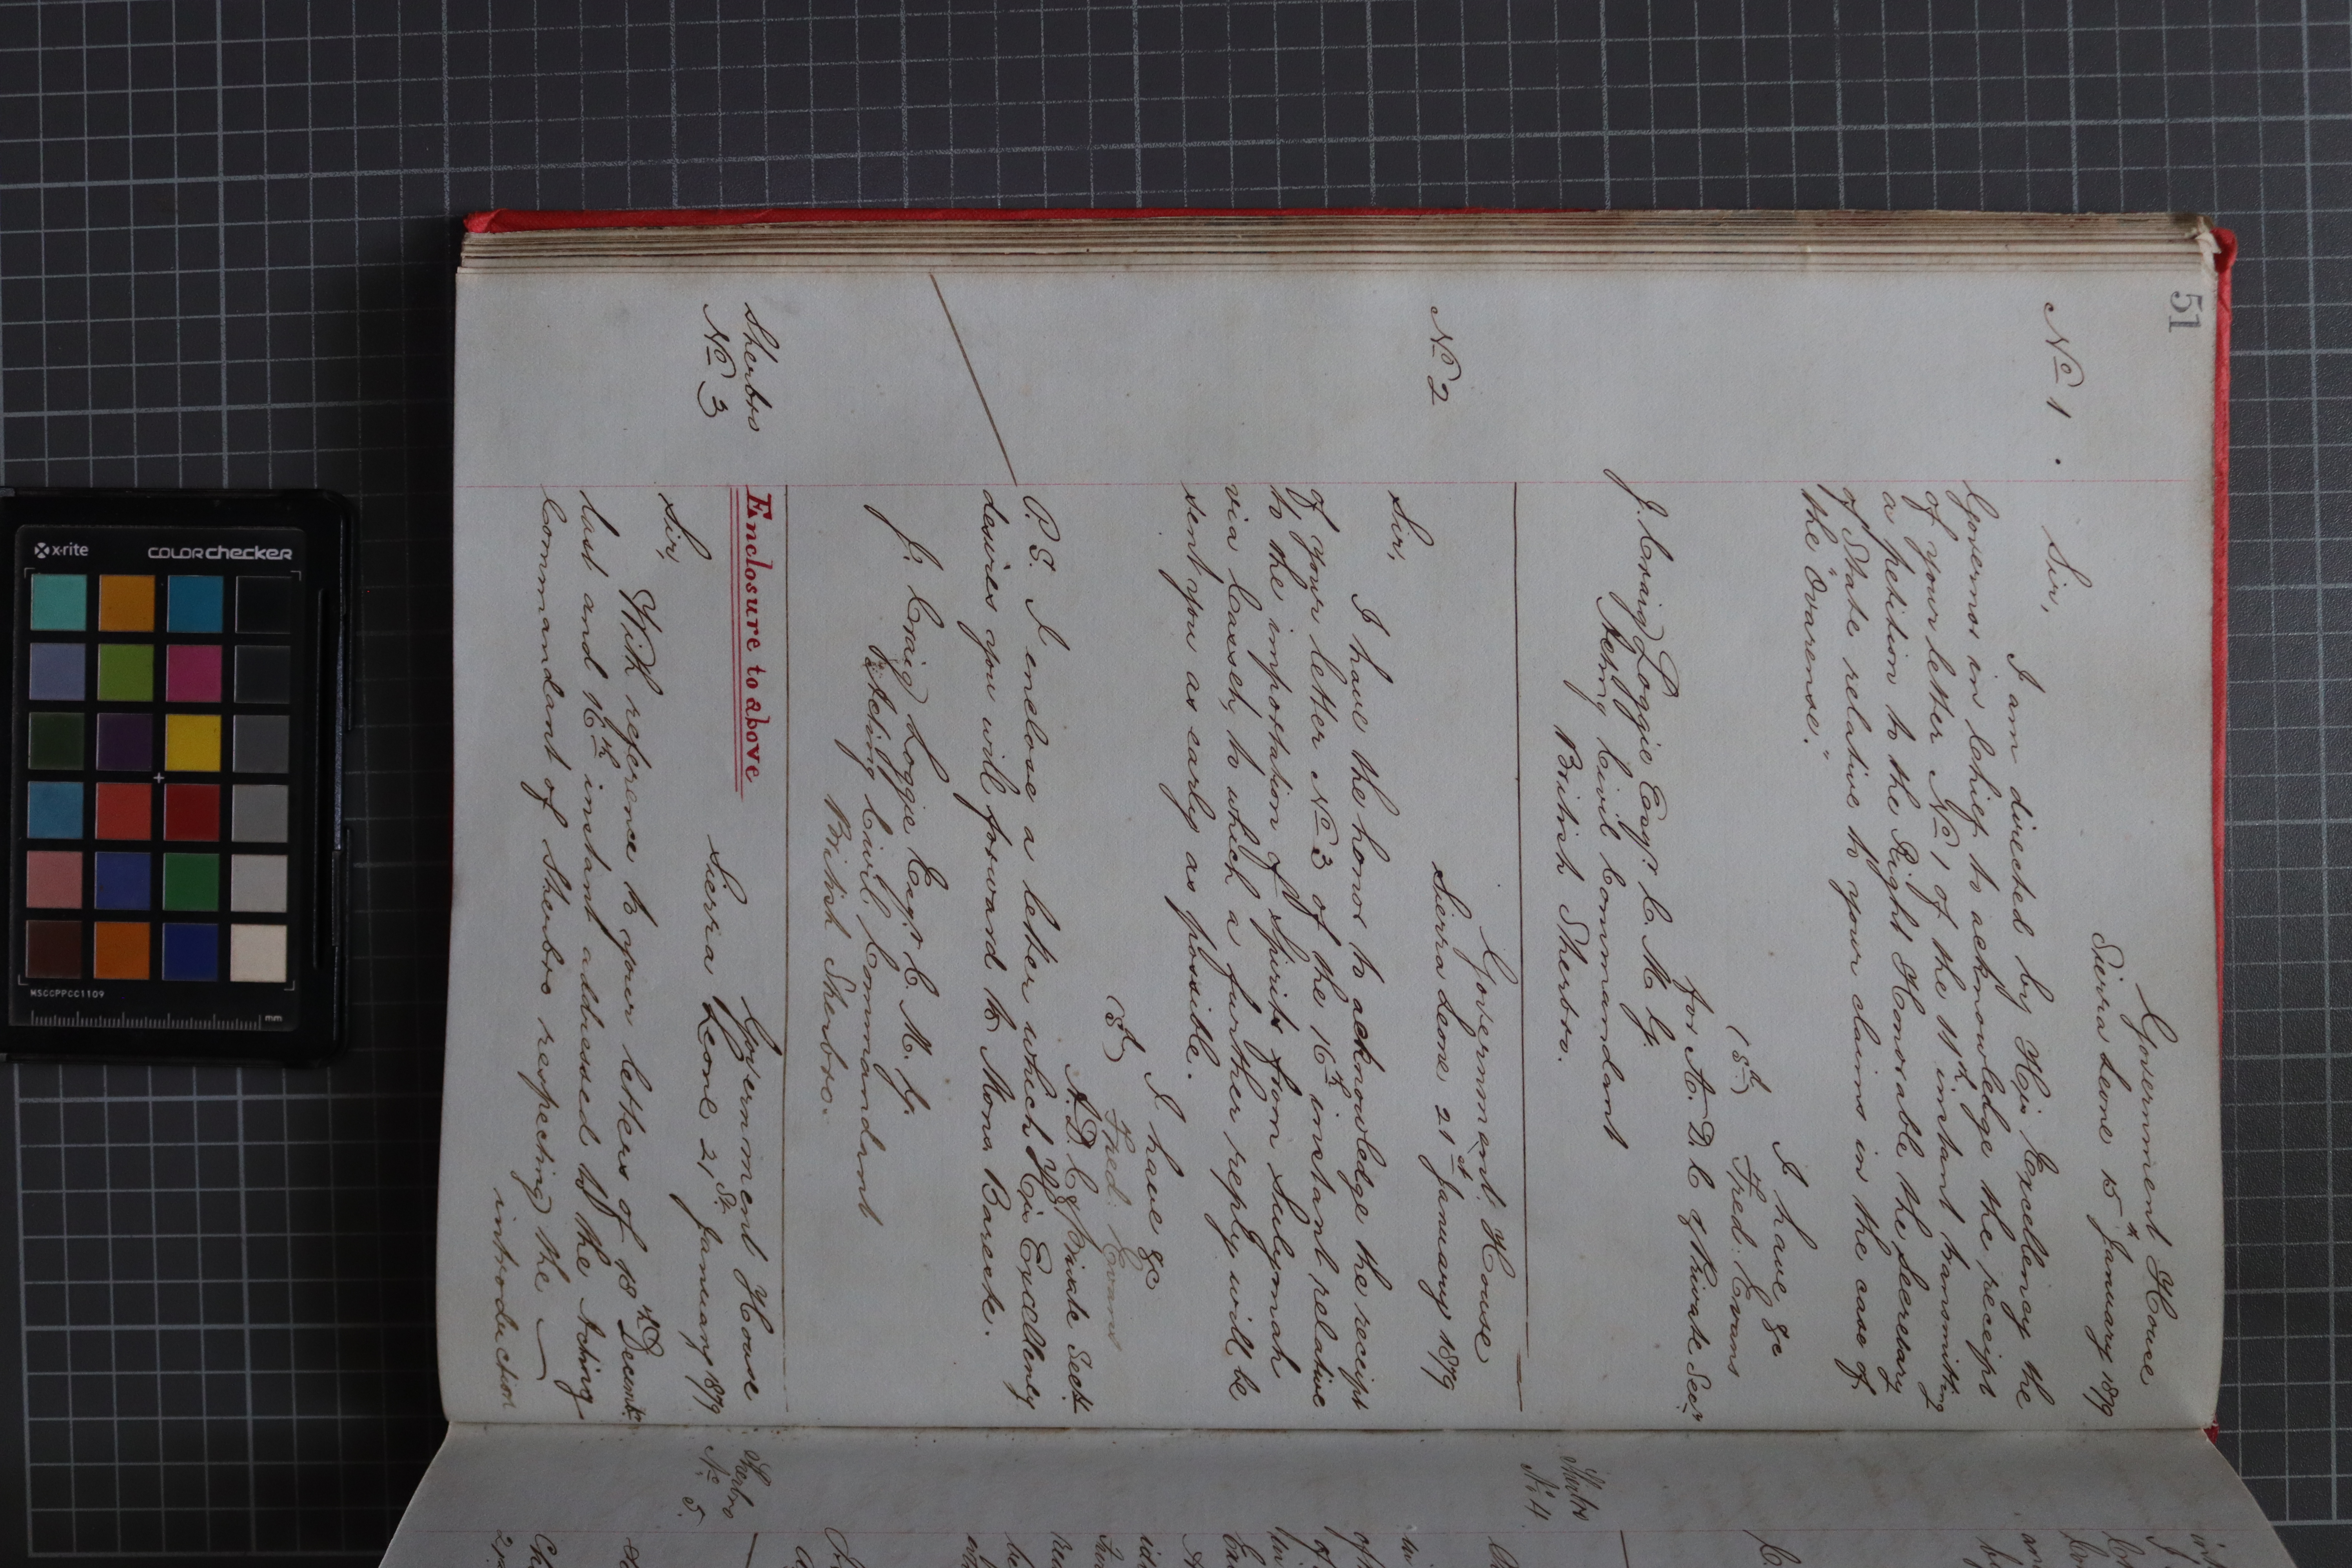 51
Government House
Sierra Leone 15th January 1879
No 1.
Sir,
I am directed by His Excellency the
Governor in Chief to acknowledge the receipt
of your letter No 1 of the 11th instant transmitting
a petition to the Right Honorable the Secretary
of State relative to your claims in the case of
the "Ovarense".
I have &c
(Sd) Fred: Evans
for A.D.C & Private Secy
J. Craig Loggie Esqr C.M.G.
Acting Civil Commandant
British Sherbro.
Government House
Sierra Leone 21st January 1879
No 2
Sir,
I have the honor to acknowledge the receipt
of your letter No 3 of the 16th instant relative
to the importation of Spirits from Sulymah
via Cassely to which a further reply will be
sent you as early as possible.
I have &c
(Sd) Fred: Evans
A.D.C & Private Secty
P.S. I enclose a letter which His Excellency
desires you will forward to Monr Bareste.
J. Craig Loggie Esqr C.M.G.
Acting Civil Commandant
British Sherbro.
Sherbro
No 3
Enclosure to above
Government House
Sierra Leone 21st January 1879
Sir,
With reference to your letters of 18th Decembr
last and 16th instant addressed to the Acting
Commandant of Sherbro respecting the
introduction
Sherbro
No 4
Sherbro
No 5.
x-rite
colorchecker
MSCCPPCC1109
mm